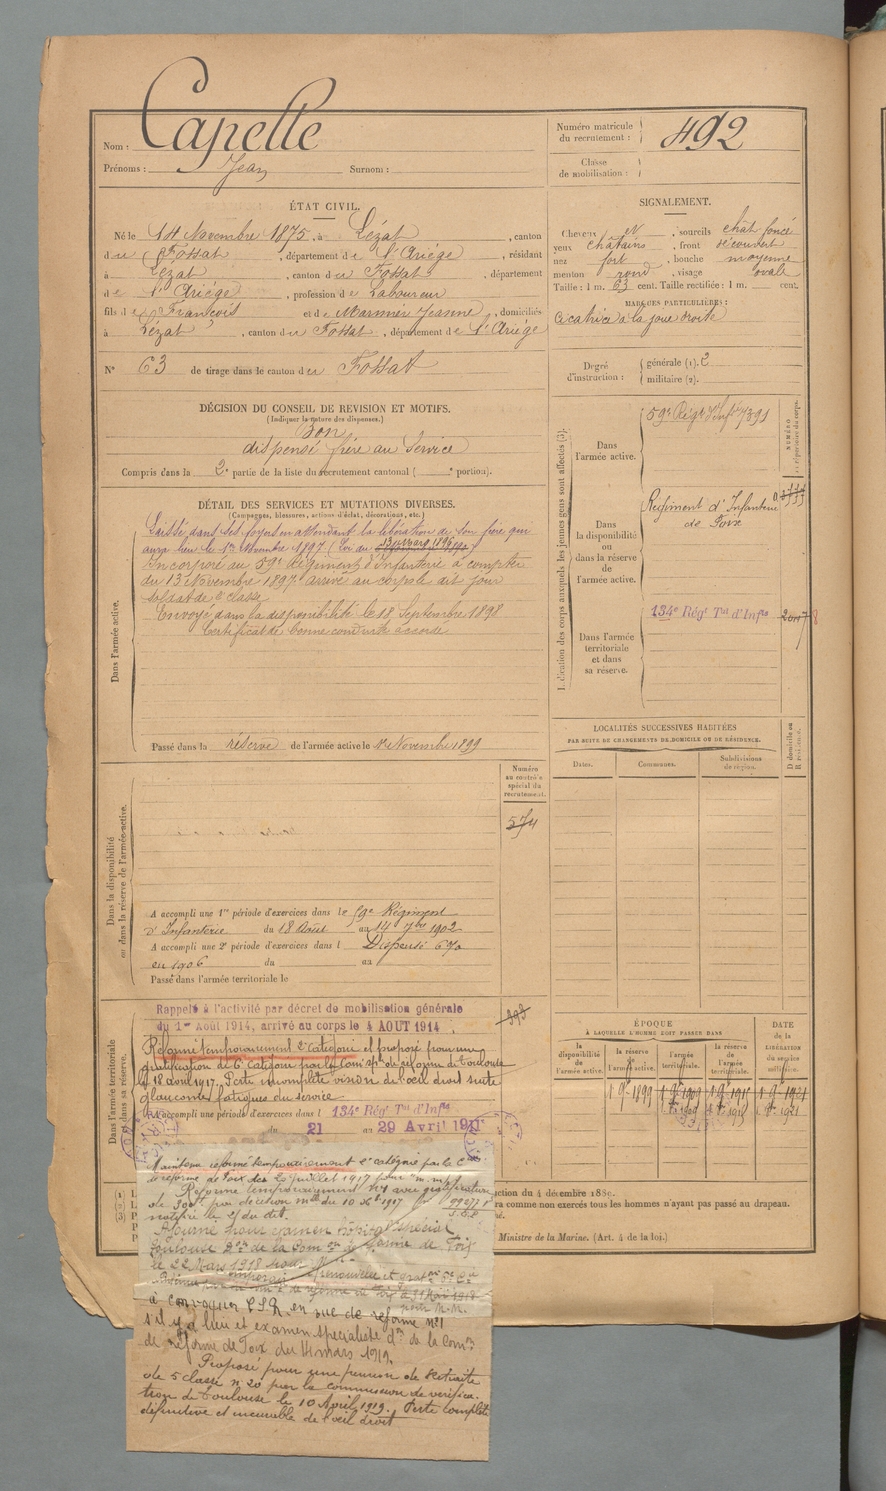 Nom : Capelle
Prénoms : Jean Surnom :
Numéro matricule
du recrutement : 492
Classe
de mobilisation :
ÉTAT CIVIL.
Né le 14 Novembre 1875, à Lézat, canton
du Fossat, département de l'Ariége, résidant
à Lézat, canton du Fossat, département
de l'Ariége, profession de Laboureur
fils de François et de Marmier Jeanne, domiciliés
à Lézat, canton du Fossat, département de l'Ariége
N° 63 de tirage dans le canton du Fossat
SIGNALEMENT.
Cheveux N, sourcils chât foncé
yeux châtains, front découvert
nez fort, bouche moyenne
menton rond, visage ovale
Taille : 1 m. 63 cent. Taille rectifiée : 1 m. cent.
MARQUES PARTICULIÈRES :
Cicatrice à la joue droite
Degré
d'instruction :
générale (1). 2
militaire (2).
DÉCISION DU CONSEIL DE REVISION ET MOTIFS.
(Indiquer la nature des dispenses.)
Bon
dispensé frère au Service
Compris dans la 2e partie de la liste du recrutement cantonal ( e portion).
DÉTAIL DES SERVICES ET MUTATIONS DIVERSES.
(Campagnes, blessures, actions d'éclat, décorations, etc.)
Dans l'armée active.
Laissé dans ses foyers en attendant la libération de son frère qui
aura lieu le 1er Novembre 1897 (Loi du
Incorporé au 59e Régiment d'Infanterie à compter
du 13 Novembre 1897 arrivé au corps le dit jour
soldat de 2e classe
Envoyé dans la disponibilité le 18 Septembre 1898
Certificat de bonne conduite accordé
Passé dans la réserve de l'armée active le 1er Novembre 1899
Indication des corps auxquels les jeunes gens sont affectés (3).
NUMÉRO
au répertoire du corps.
Dans
l'armée active.
59e Régt d'Infie 7391
Dans
la disponibilité
ou
dans la réserve
de
l'armée active.
Régiment d'Infanterie
de Foix
Dans l'armée
territoriale
et dans
sa réserve.
134e Régt Tal d'Infie
LOCALITÉS SUCCESSIVES HABITÉES
PAR SUITE DE CHANGEMENTS DE DOMICILE OU DE RÉSIDENCE.
Dates.
Communes.
Subdivisions
de région.
D domicile ou
R résidence.
Dans la disponibilité
ou dans la réserve de l'armée active.
Numéro
au contrôle
spécial du
recrutement.
574
A accompli une 1re période d'exercices dans le 59e Régiment
d'Infanterie du 18 Août au 14 7bre 1902
A accompli une 2e période d'exercices dans l Dispensé 6%
en 1906 du au
Passé dans l'armée territoriale le
Dans l'armée territoriale
et dans sa réserve.
Rappelé à l'activité par décret de mobilisation générale
du 1er Août 1914, arrivé au corps le 4 AOUT 1914
Réformé temporairement 2e Catégorie et proposé pour une
gratification de 6e Catégorie par la Comion sple de réforme de Toulouse
le 18 avril 1917. Perte incomplète vision de l'oeil droit suite
glaucome, fatigues du service
A accompli une période d'exercices dans l 134e Régt Tal d'Infie
du 21 au 29 Avril 1911
ÉPOQUE
À LAQUELLE L'HOMME DOIT PASSER DANS
la
disponibilité
de
l'armée active.
la réserve
de
l'armée active.
l'armée
territoriale.
la réserve
de
l'armée
territoriale.
DATE
de la
LIBÉRATION
du service
militaire.
1 9bre 1899
1 9bre 1909
1er 8bre 1909
Maintenu réformé temporairement 2e catégorie par la Con
de réforme de Foix du 20 juillet 1917 pour "m. m."
Réformé temporairement N°1 avec gratification
de 300f par décision mlle du 10 8bre 1917
notifiée le 21 du dit.
Ajourné pour examen hôpital spécial
Toulouse Don de la Comon de réforme de Foix
le 22 Mars 1918
à convoquer C.S.R. en vue de réforme N°1
s'il y a lieu et examen spécialiste don de la Comon
de réforme de Foix du 14 mars 1919.
Proposé pour une pension de retraite
de 5 classe n° 20 par la commission de vérifica-
tion de Toulouse le 10 Avril 1919. Perte complète
définitive et incurable de l'oeil droit
ction du 4 décembre 1889.
ra comme non exercés tous les hommes n'ayant pas passé au drapeau.
Ministre de la Marine. (Art. 4 de la loi.)